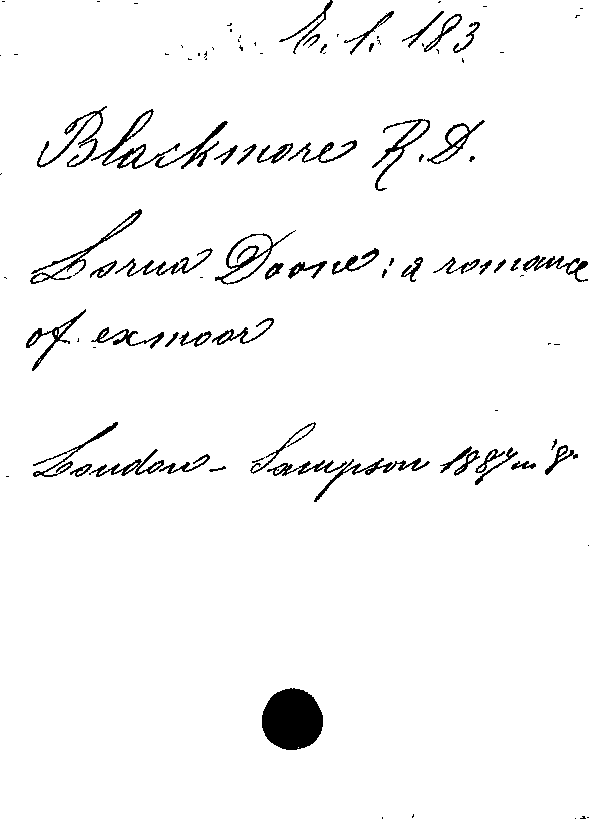 E. 1. 183
Blackmore R.D.
Lorna Doone: a romance
of exmoor
London - Sampson 1887 in 8°